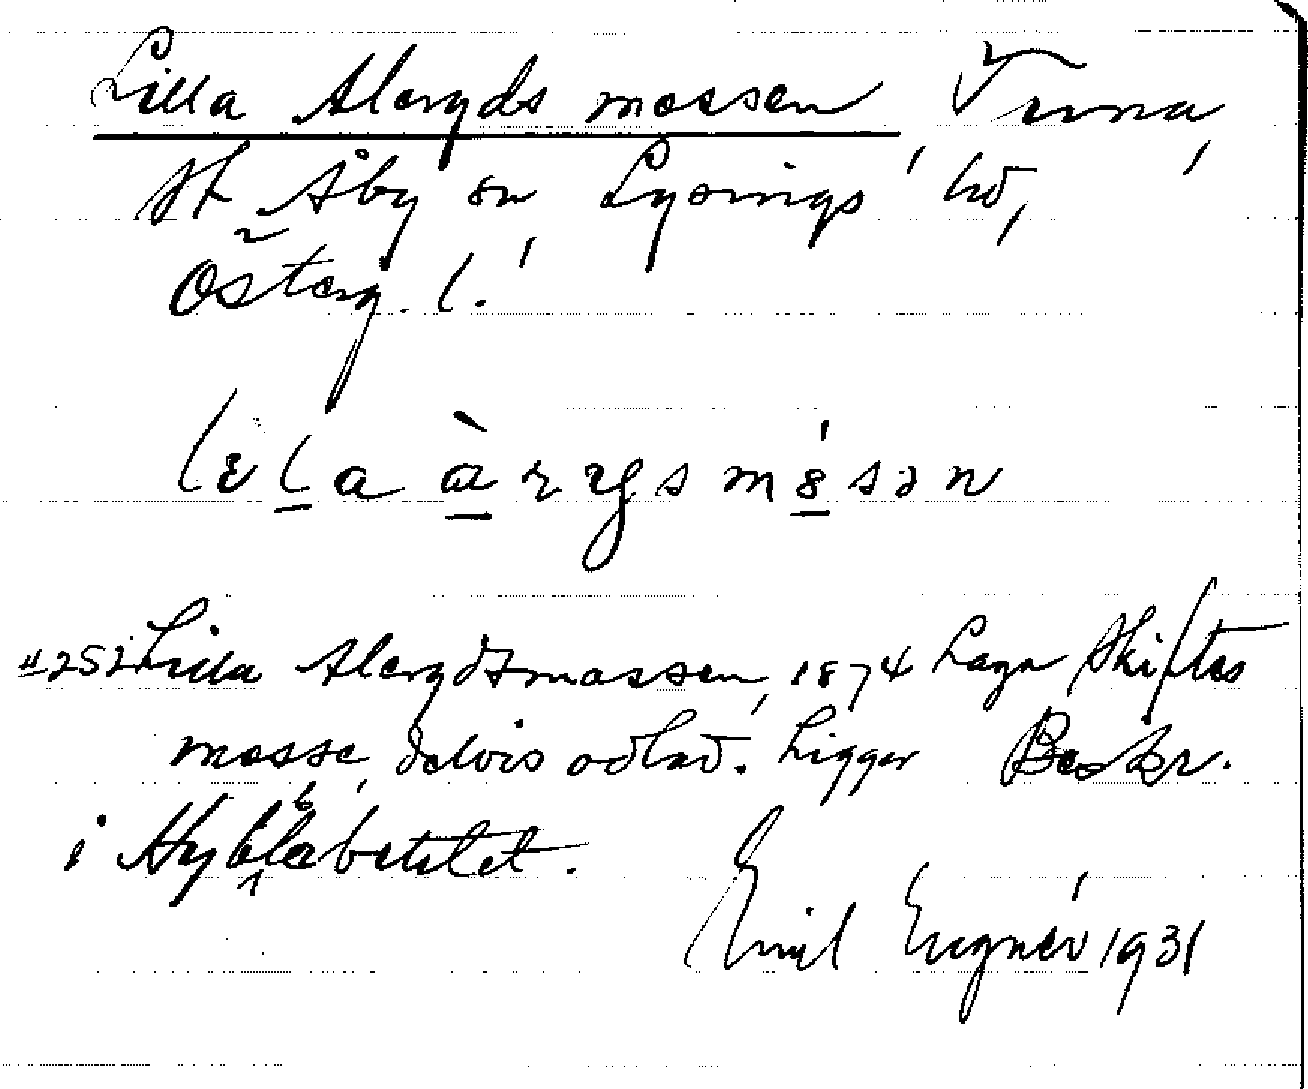 Lilla Alergds mossen, Turna,
st Åby sn Lysings hd,
Österg. l.
lɛla àrrgsmósən
Lilla Alergdsmossen, 1874 Laga Skiftes
mosse, delvis odlad. Ligger Beskr.
i Hybblebetetet.
Emil Eugnér 1931